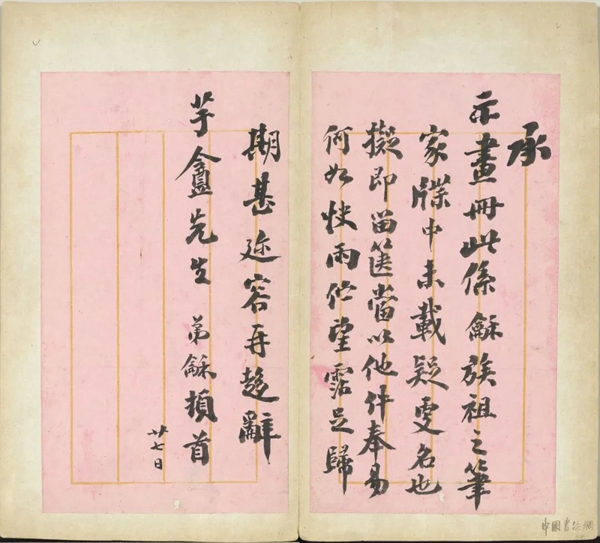 承
示畫冊此係龢族祖之筆
家牒中未載疑更名也
擬即留篋當以他件奉易
何如快雨佇望霑足歸
期甚邇容再趨辭
芋龕先生 弟龢頓首
廿七日